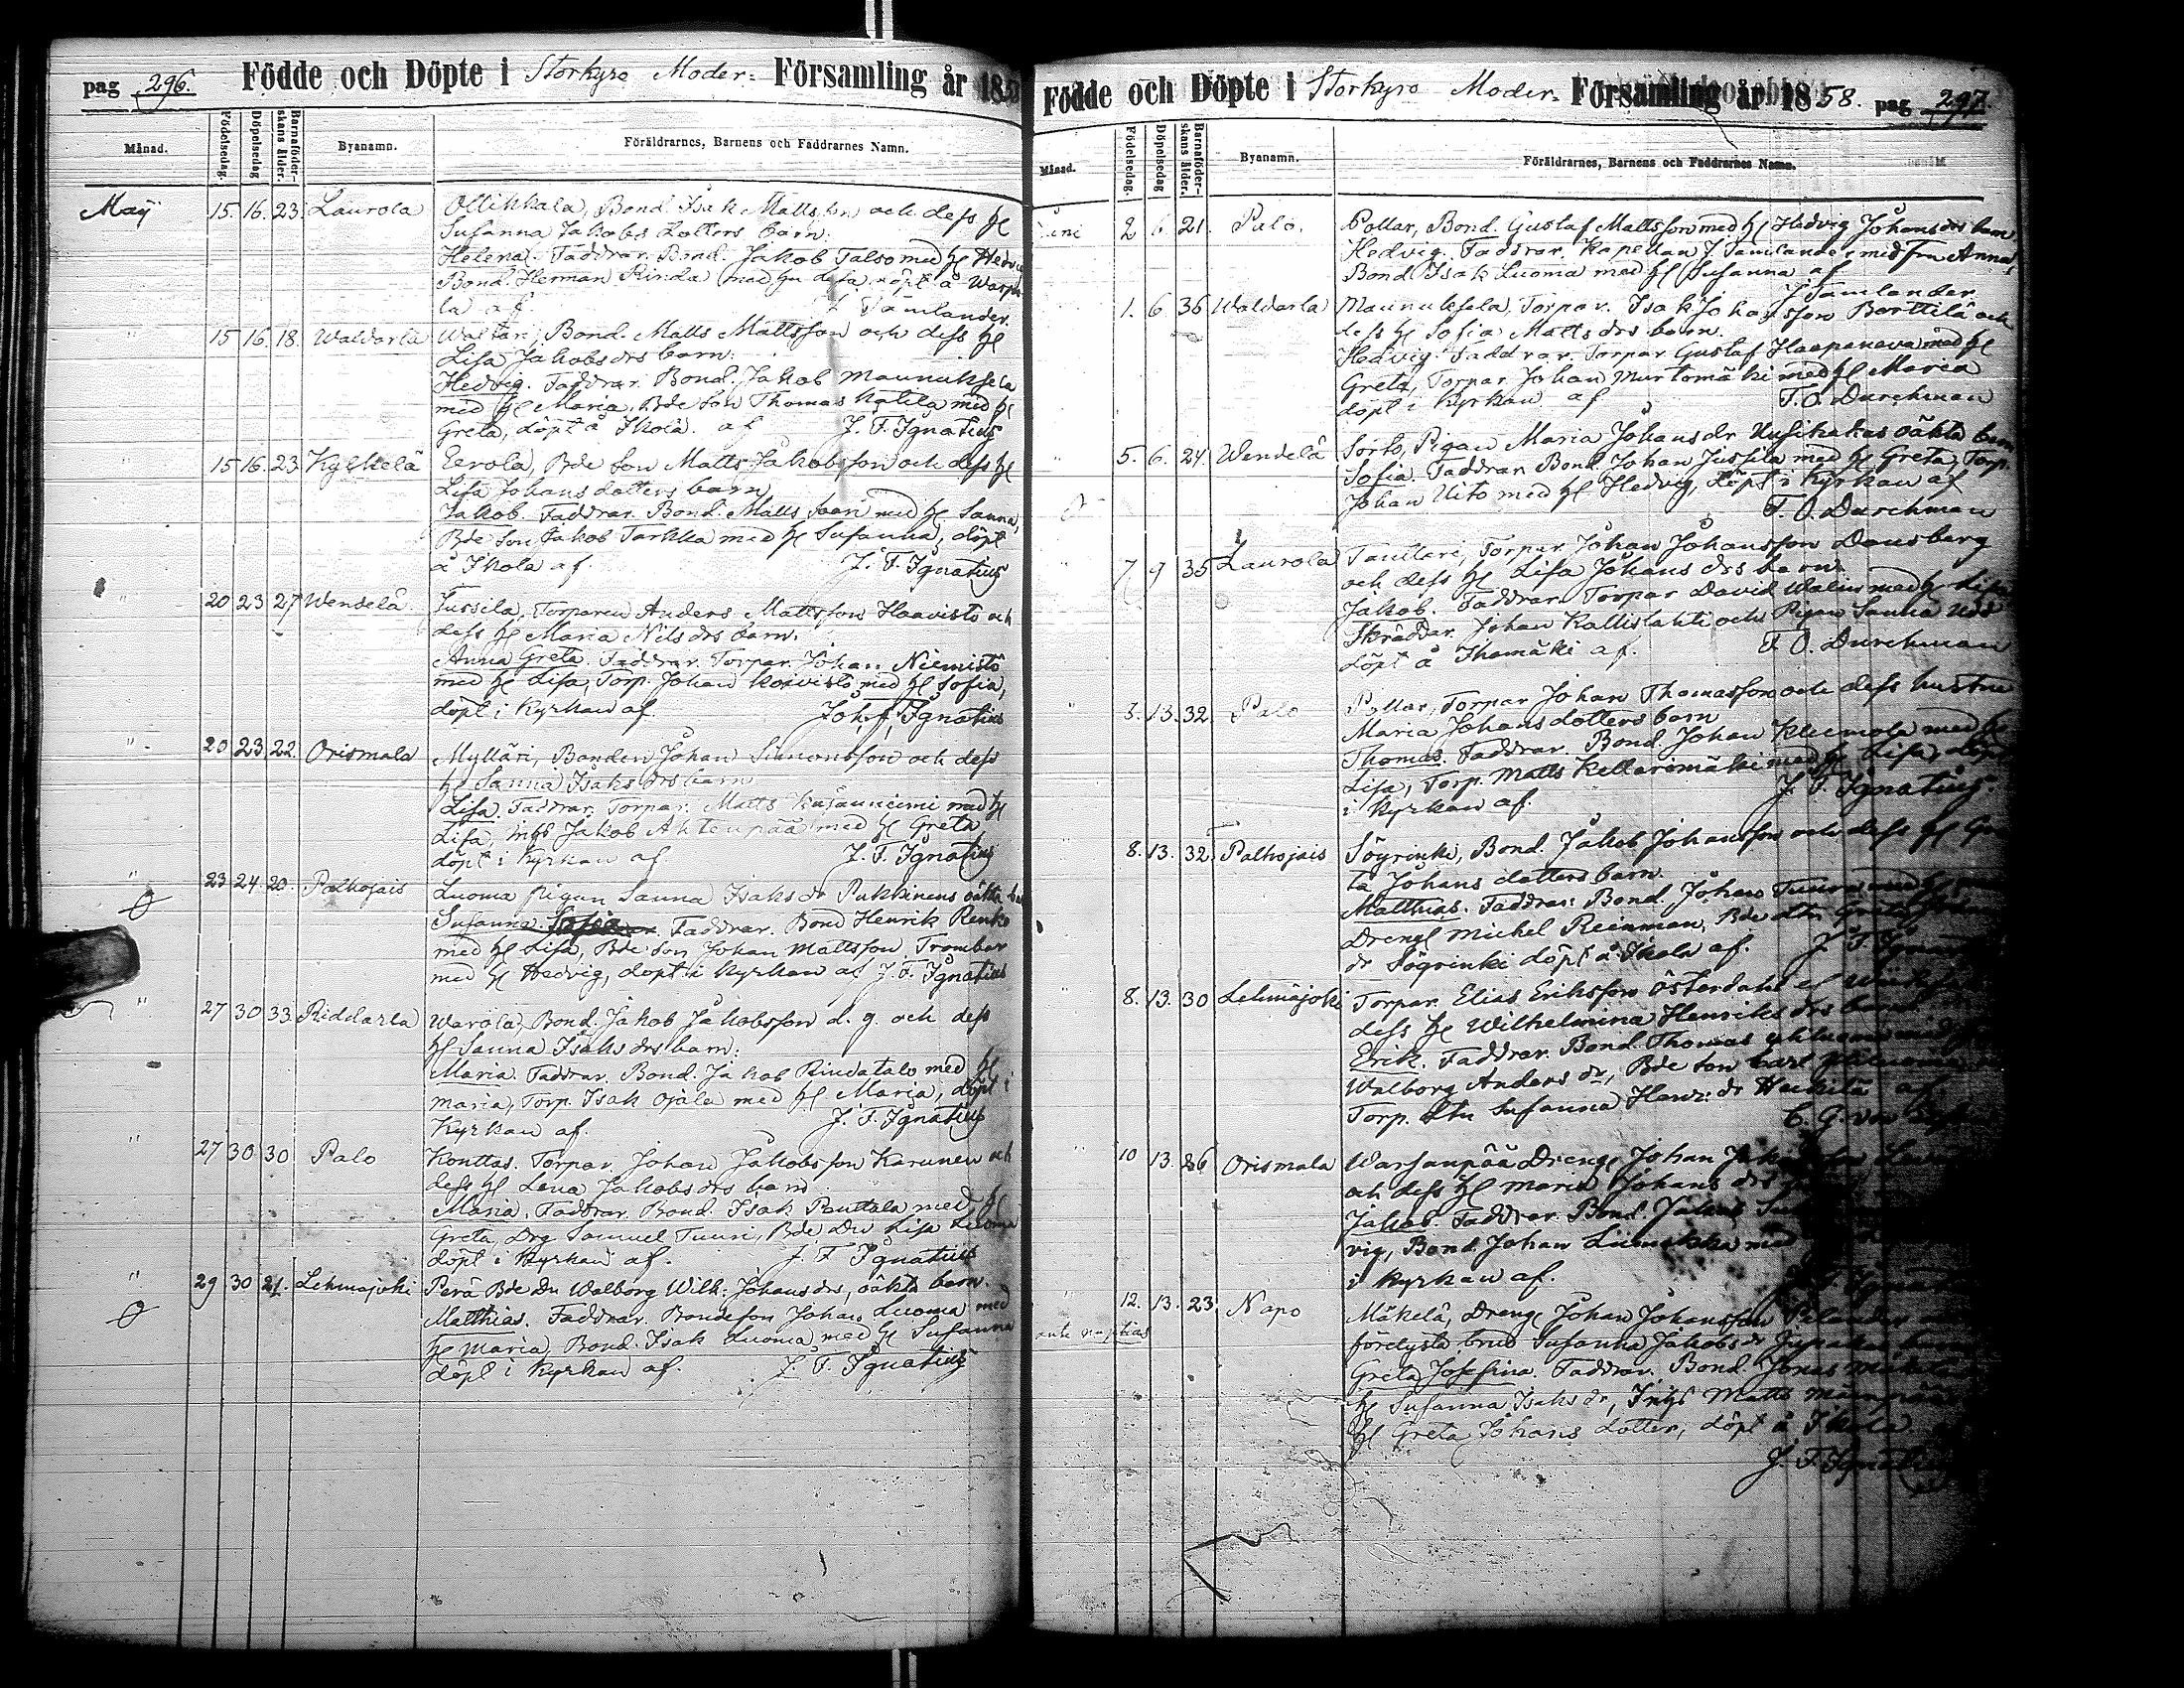 pag 296. Födde och Döpte i Storkyro Moder- Församling år 1858
Månad. Födelsedag. Döpelsedag Barnaföder-skans ålder. Byanamn. Föräldrarnes, Barnens och Faddrarnes Namn.
May 15. 16. 23. Laurola Ollikkala, Bond. Isak Mattsson och dess hu
Susanna Jakobs dotters barn.
Helena. Faddrar. Bond. Jakob Talso med hu Hedvig
Bond. Herman Rinda med
la af J Tamlander.
" 15 16. 18. Waldarla Waltari, Bond. Matts Mattsson och dess hu
Lisa Jakobs drs barn.
Hedvig. Faddrar. Bond. Jakob Maunuksela
med hu Maria, Bde son Thomas Katila med hu
Greta, döpt å Skola. af J. F. Ignatius
" 15 16. 23 Kylkelä Eerola, Bde son Matts Jakobsson och dess hu
Lisa Johans dotters barn
Jakob. Faddrar. Bond. Matts med hu Sanna,
Bde son Jakob Tarkka med hu Susanna, döpt
å Skola af. J. F. Ignatius
" 20 23 27 Wendelä Jussila, Torparen Anders Mattsson Haavisto och
dess hu Maria Nils drs barn.
Anna Greta. Faddrar. Torpar. Johan Niemistö
med hu Lisa, Torp. Johan Koivisto med hu Sofia,
döpt i Kyrkan af. Joh. f. Ignatius
". 20 23 22. Orismala Mylläri, Bonden Johan Simonsson och dess
hu Sanna Isaks drs barn
Lisa. Faddrar. Torpar. Matts med hu
Lisa, inhs Jakob Ahtenpää med hu Greta
döpt i Kyrkan af J. F. Ignatius
" 23 24. 20. Palhojais Luoma pigan Sanna Isaks dr Pukkinens oäkta
Susanna. Faddrar. Bond Henrik Renko
med hu Lisa, Bde son Johan Mattsson Trombar
med hu Hedvig, döpt i Kyrkan af J. F. Ignatius
" 27 30 33. Riddarla Warola, Bond. Jakob Jakobsson d. y. och dess
hu Sanna Isaks drs barn:
Maria. Faddrar. Bond. Jakob Rindatalo med hu
Maria, Torp. Isak Ojala med hu Maria, döpt i
Kyrkan af. J. F. Ignatius
" 27 30 30 Palo Konttas. Torpar. Johan Jakobsson Karunen och
dess hu Lena Jakobs drs barn
Maria. Faddrar. Bond. Isak Panttala med hu
Greta, Drg Samuel Tuuri, Bde Dn Lisa Luoma
döpt i Kyrkan af. J. F. Ignatius
" 29 30 21. Lehmajoki Perä Bde dn Walborg Wilh: Johans drs, oäkta barn.
Matthias. Faddrar. Bondeson Johan Luoma med
hu Maria, Bond. Isak Luoma med hu Susanna
döpt i Kyrkan af. J. F. Ignatius
Födde och Döpte i Storkyro Moder- Församling år 1858. pag 297.
Månad. Födelsedag. Döpelsedag Barnaföder-skans ålder. Byanamn. Föräldrarnes, Barnens och Faddrarnes Namn.
Juni 2 6. 21. Palo. Pollar, Bond. Gustaf Mattsson med hu Hedvig Johans drs barn
Hedvig. Faddrar. Kapellan J Tamlander med fru Anna,
Bond. Isak Luoma med hu Susanna af
J Tamlander.
1. 6 36 Waldarla Maunuksela, Torpar. Isak Johansson Berttilä och
dess hu Sofia Matts drs barn.
Hedvig. Faddrar. Torpar Gustaf Haapanava med hu
Greta, Torpar. Johan Murtomäki med hu Maria
döpt i Kyrkan af F. O. Durchman
" 5. 6. 24. Wendelä Sorto, Pigan Maria Johans dr oäkta barn
Sofia. Faddrar. Bond. Johan Jussila med hu Greta, Torp.
Johan Uito med hu Hedvig, döpt i Kyrkan af
F. O. Durchman
" 7 9 35 Laurola Tanttari, Torpar Johan Johansson Dansberg
och dess hu Lisa Johans drs barn
Jakob. Faddrar. Torpar David Walin med hu Lisa
Skräddar. Johan Kallislahti och Pigan Sanna
döpt å af. F. O. Durchman
" 3. 13. 32. Palo Pollar, Torpar Johan Thomasson och dess hustru
Maria Johans dotters barn
Thomas. Faddrar. Bond. Johan Kleemola med hu
Lisa, Torp. Matts Kellarimäki med hu Lisa, döpt
i Kyrkan af. J. F. Ignatius.
8. 13. 32. Palhojais Sögrinki, Bond. Jakob Johansson och dess hu Gre
ta Johans dotters barn.
Matthias. Faddrar: Bond. Johan Tuura med hu
Dreng Michel Reinman, Bde dtn Greta
dr Sögrinki döpt å Skola af. J F Ignatius
" 8. 13. 30 Lehmäjoki Torpar. Elias Eriksson Österdahl
dess hu Wilhelmina Henriks drs barn
Erik. Faddrar. Bond. Thomas Yliluoma med
Walborg Anders dr, Bde son Carl Yliluoma
Torp. dtn Susanna Henr: dr Heikilä af
C. G. von
" 10 13. 26 Orismala Warsanpää Dreng Johan
och dess hu Maria Johans drs
Jakob. Faddrar. Bond. Jakob
vig, Bond. Johan med
i Kyrkan af. J. F. Ignatius
" 12. 13. 23 Napo Mäkelä, Dreng Johan Johansson Pelander
ante nuptias förelysta brud Susanna Jakobs dr
Greta Josefina. Faddrar. Bond. Jonas
hu Susanna Isaks dr, Inhs Matts
hu Greta Johans dotter, döpt å Skola
J. F. Ignatius